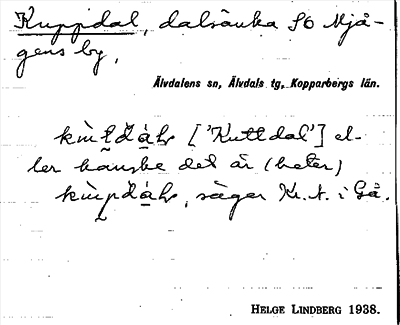 Kuppdal, dalsänka SO Mjå-
gens by,
Älvdalens sn, Älvdals tg, Kopparbergs län.
['Kuttdal'] el-
ler kanske det är (heter)
säger Kr. A. i Gå.
HELGE LINDBERG 1938.